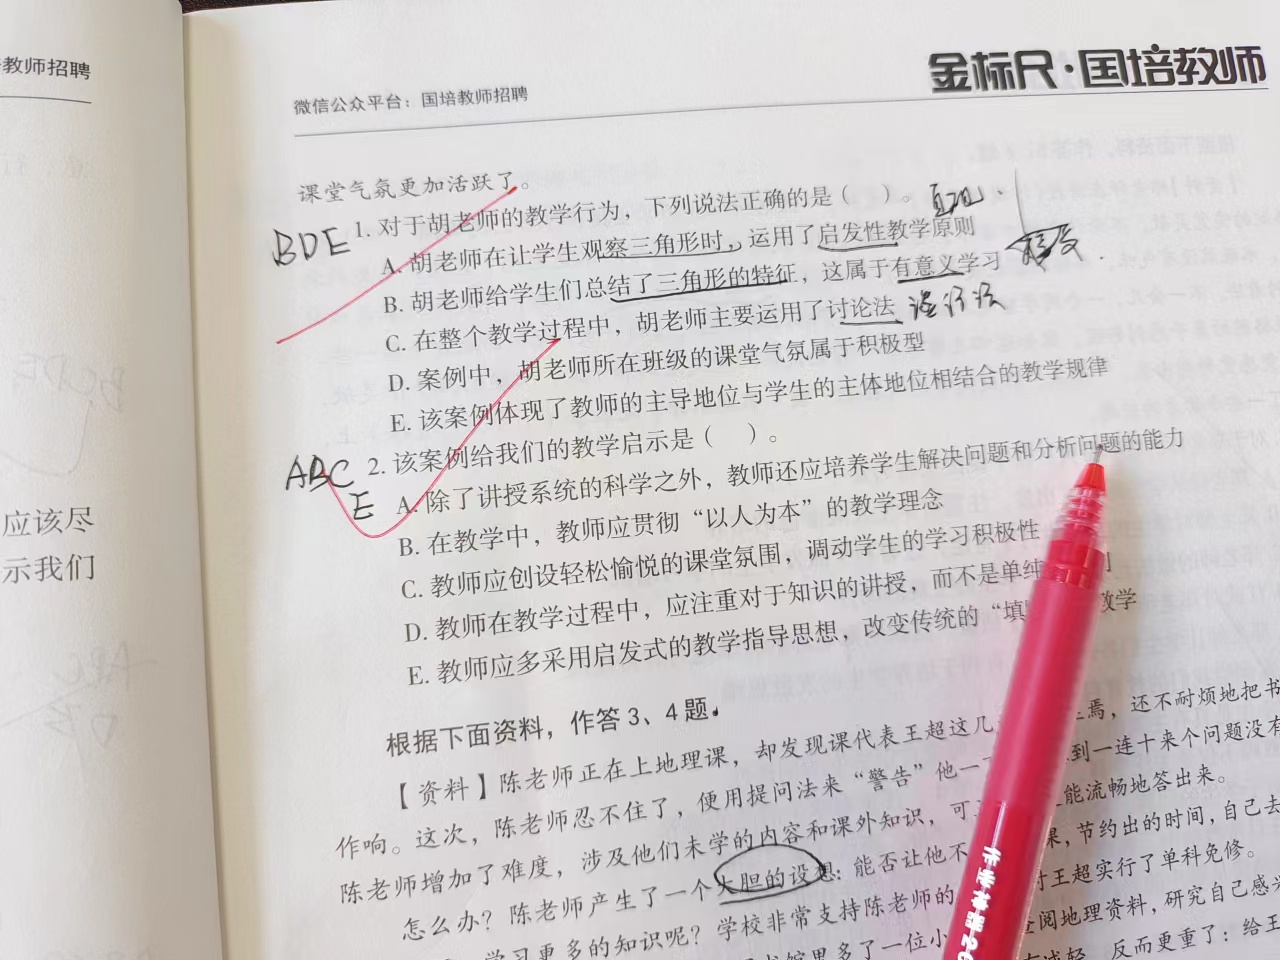 教师招聘
应该尽
示我们
金标尺·国培教师
微信公众平台：国培教师招聘
课堂气氛更加活跃了。
BDE 1. 对于胡老师的教学行为，下列说法正确的是（ ）。 直观
A. 胡老师在让学生观察三角形时，运用了启发性教学原则
B. 胡老师给学生们总结了三角形的特征，这属于有意义学习 接受
C. 在整个教学过程中，胡老师主要运用了讨论法 谈话法
D. 案例中，胡老师所在班级的课堂气氛属于积极型
E. 该案例体现了教师的主导地位与学生的主体地位相结合的教学规律
ABC 2. 该案例给我们的教学启示是（ ）。
E A. 除了讲授系统的科学之外，教师还应培养学生解决问题和分析问题的能力
B. 在教学中，教师应贯彻“以人为本”的教学理念
C. 教师应创设轻松愉悦的课堂氛围，调动学生的学习积极性
D. 教师在教学过程中，应注重对于知识的讲授，而不是单纯
E. 教师应多采用启发式的教学指导思想，改变传统的“填 教学
根据下面资料，作答 3、4 题。
【资料】陈老师正在上地理课，却发现课代表王超这几 焉，还不耐烦地把书
作响。这次，陈老师忍不住了，便用提问法来“警告”他一 到一连十来个问题没有
陈老师增加了难度，涉及他们未学的内容和课外知识，可 能流畅地答出来。
怎么办？陈老师产生了一个大胆的设想：能否让他不 果，节约出的时间，自己去
学习更多的知识呢？学校非常支持陈老师的 对王超实行了单科免修。
里多了一位小 查阅地理资料，研究自己感兴
减轻，反而更重了：给王